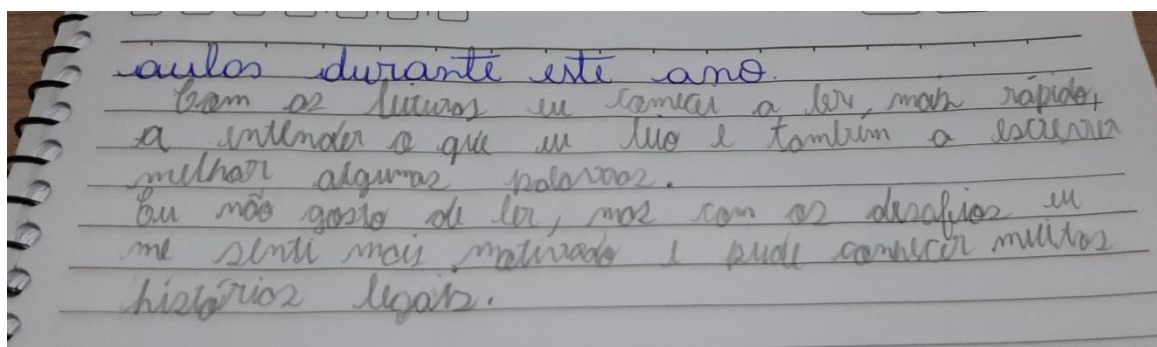 aulas durante este ano.
Com as leituras eu comecei a ler, mais rápido,
a entender o que eu leio e também a escrever
melhor algumas palavras.
Eu não gosto de ler, mas com os desafios eu
me senti mais motivado e pude conhecer muitas
histórias legais.